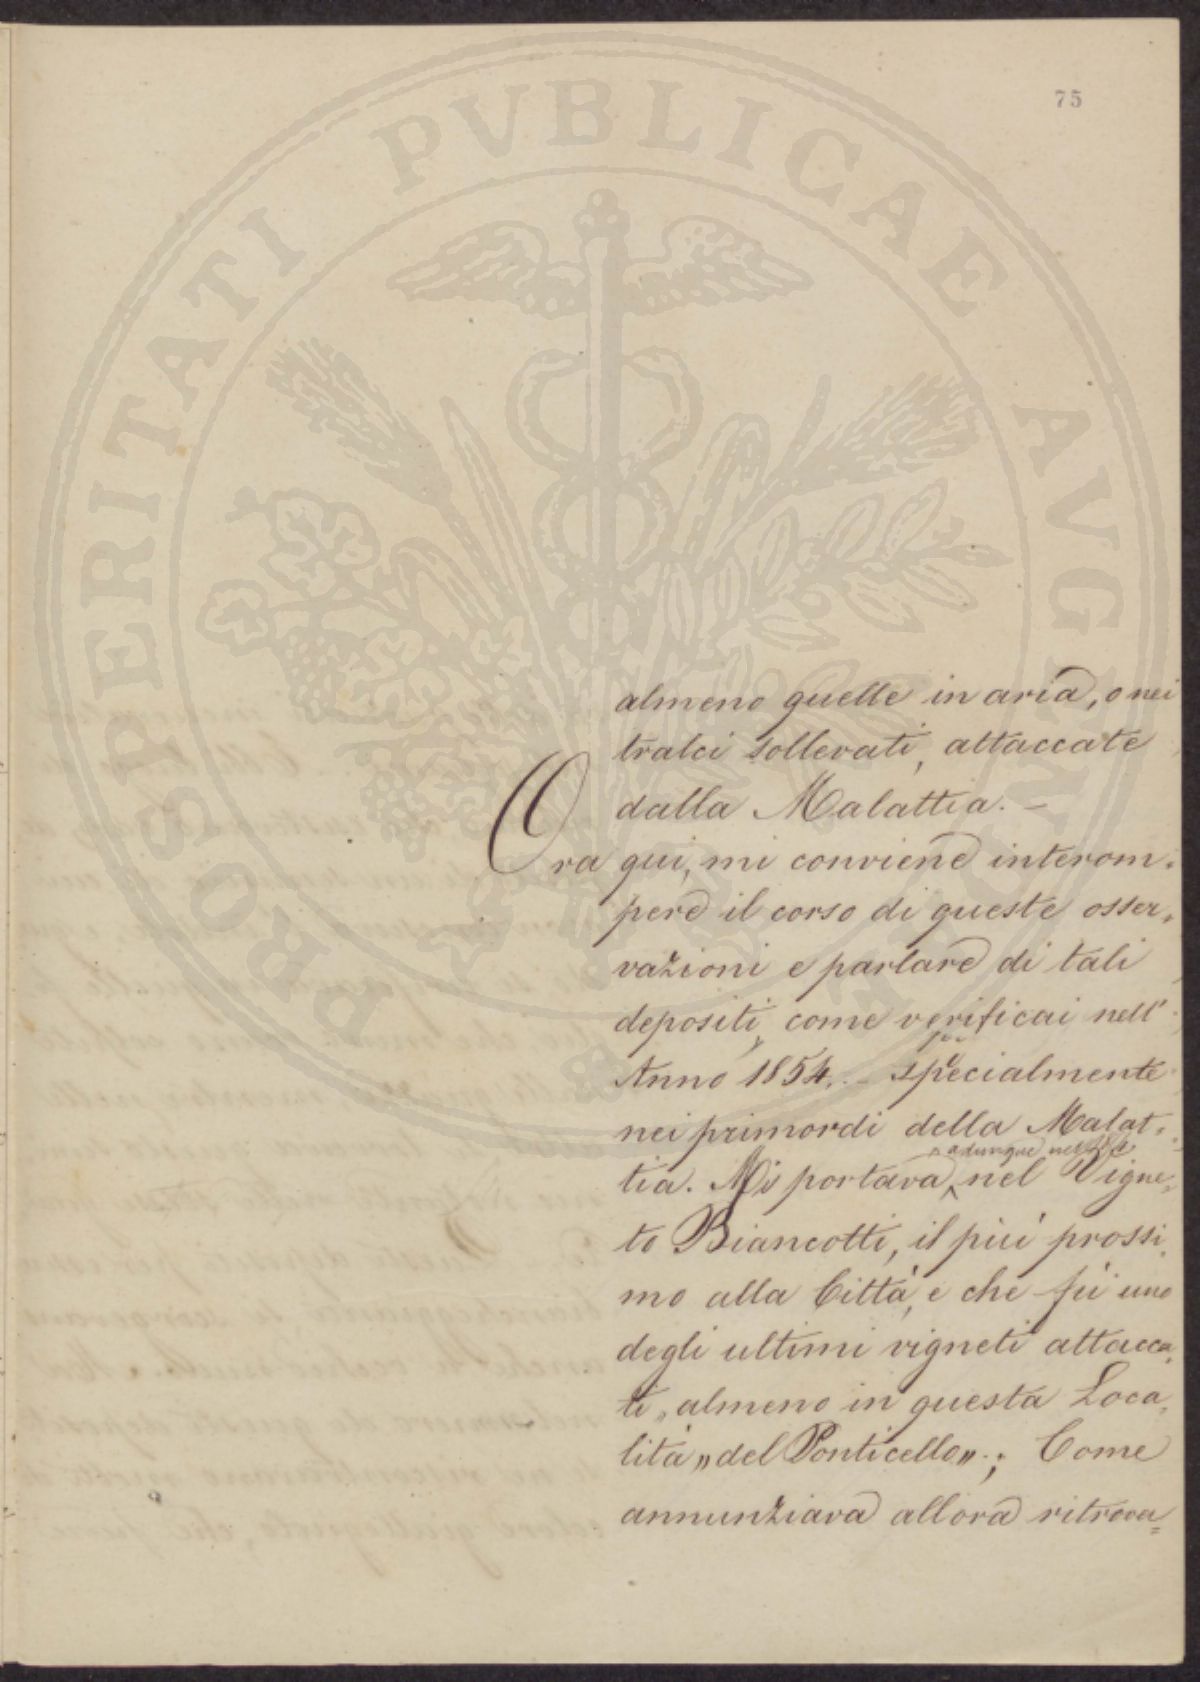 75
PROSPERITATI PVBLICAE AVG
almeno quelle in aria, o nei
tralci sollevati, attaccate
dalla Malattia. –
Ora qui, mi conviene interom-
pere il corso di queste osser-
vazioni e parlare di tali
depositi, come verificai nell'
Anno 1854. – specialmente
nei primordi della Malat-
tia. Mi portava adunque nel
nel Vigne-
to Biancotti, il più prossi-
mo alla Città, e che fù uno
degli ultimi vigneti attacca-
ti, almeno in questa Loca-
lità „del Ponticello„.; Come
annunziava allora ritrova=